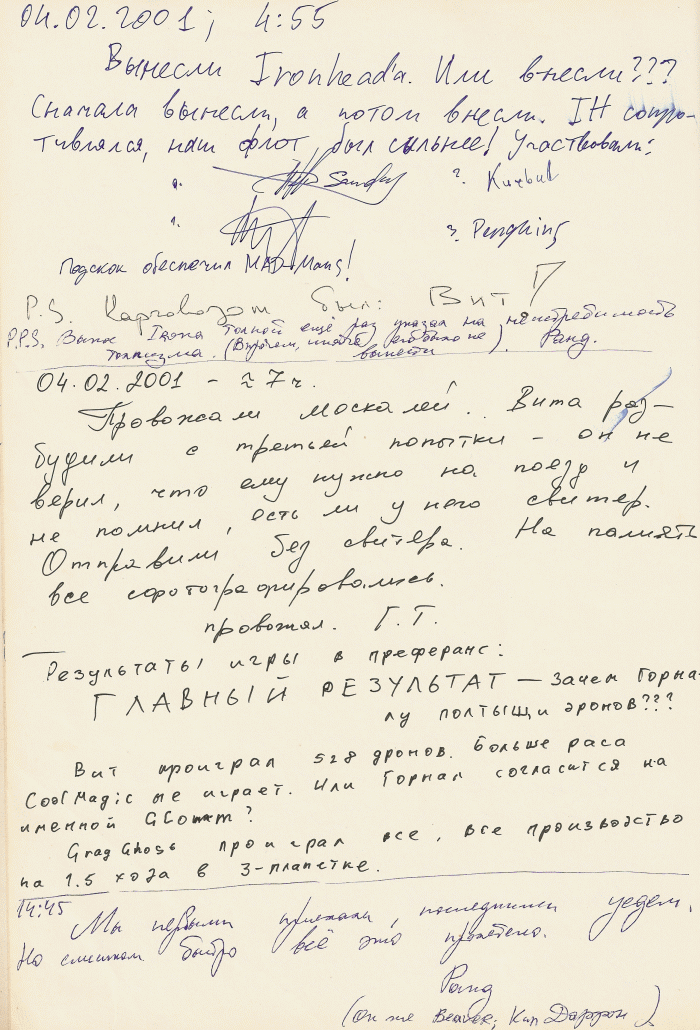 04.02.2001; 4:55
Вынесли Ironhead'а. Или внесли???
Сначала вынесли, а потом внесли. IH сопро-
тивлялся, наш флот был сильнее! Участвовали:
0. Sandy 2.
1. 3. Penghing
Подскок обеспечил MAD Mans!
P.S. был: Вит
P.P.S. Вынос Iрона толпой ещё раз указал на неистребимость
(Впрочем, иначе его было не
вынести). Ранд.
04.02.2001 - ≈ 7 ч.
Провожали москалей. Вита раз-
будили с третьей попытки - он не
верил, что ему нужно на поезд и
не помнил, есть ли у него свитер.
Отправили без свитера. На память
все сфотографировались.
провожал. Г.Т.
Результаты игры в преферанс:
ГЛАВНЫЙ РЕЗУЛЬТАТ - Зачем Горна-
лу полтыщи дронов???
Вит проиграл 528 дронов. Больше раса
CoolMagic не играет. Или Горнал согласится на
именной GComm?
GragGhost проиграл все, все производство
на 1.5 хода в 3-планетке.
14:45
Мы первыми приехали, последними уедем.
Но слишком быстро всё это пролетело.
Ранд
(Он же Beavor; Кап Даррон)